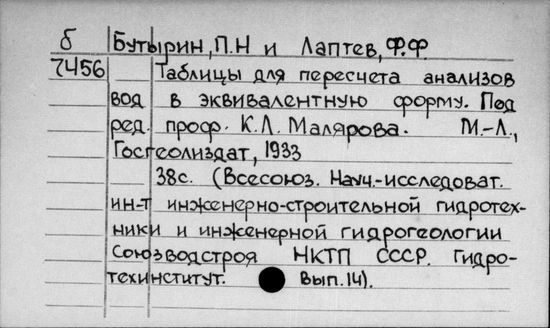 б Бутырин, П.Н и Лаптев, Ф.Ф.
7456 Таблицы для пересчета анализов
вод в эквивалентную форму. Под
ред. проф. К.Л. Малярова. М.-Л.,
Госгеолиздат, 1933
38с. (Всесоюз. Науч.-исследоват.
ин-т инженерно-строительной гидротех-
ники и инженерной гидрогеологии
Союзводстроя НКТП СССР. Гидро-
техинститут. Вып.14).